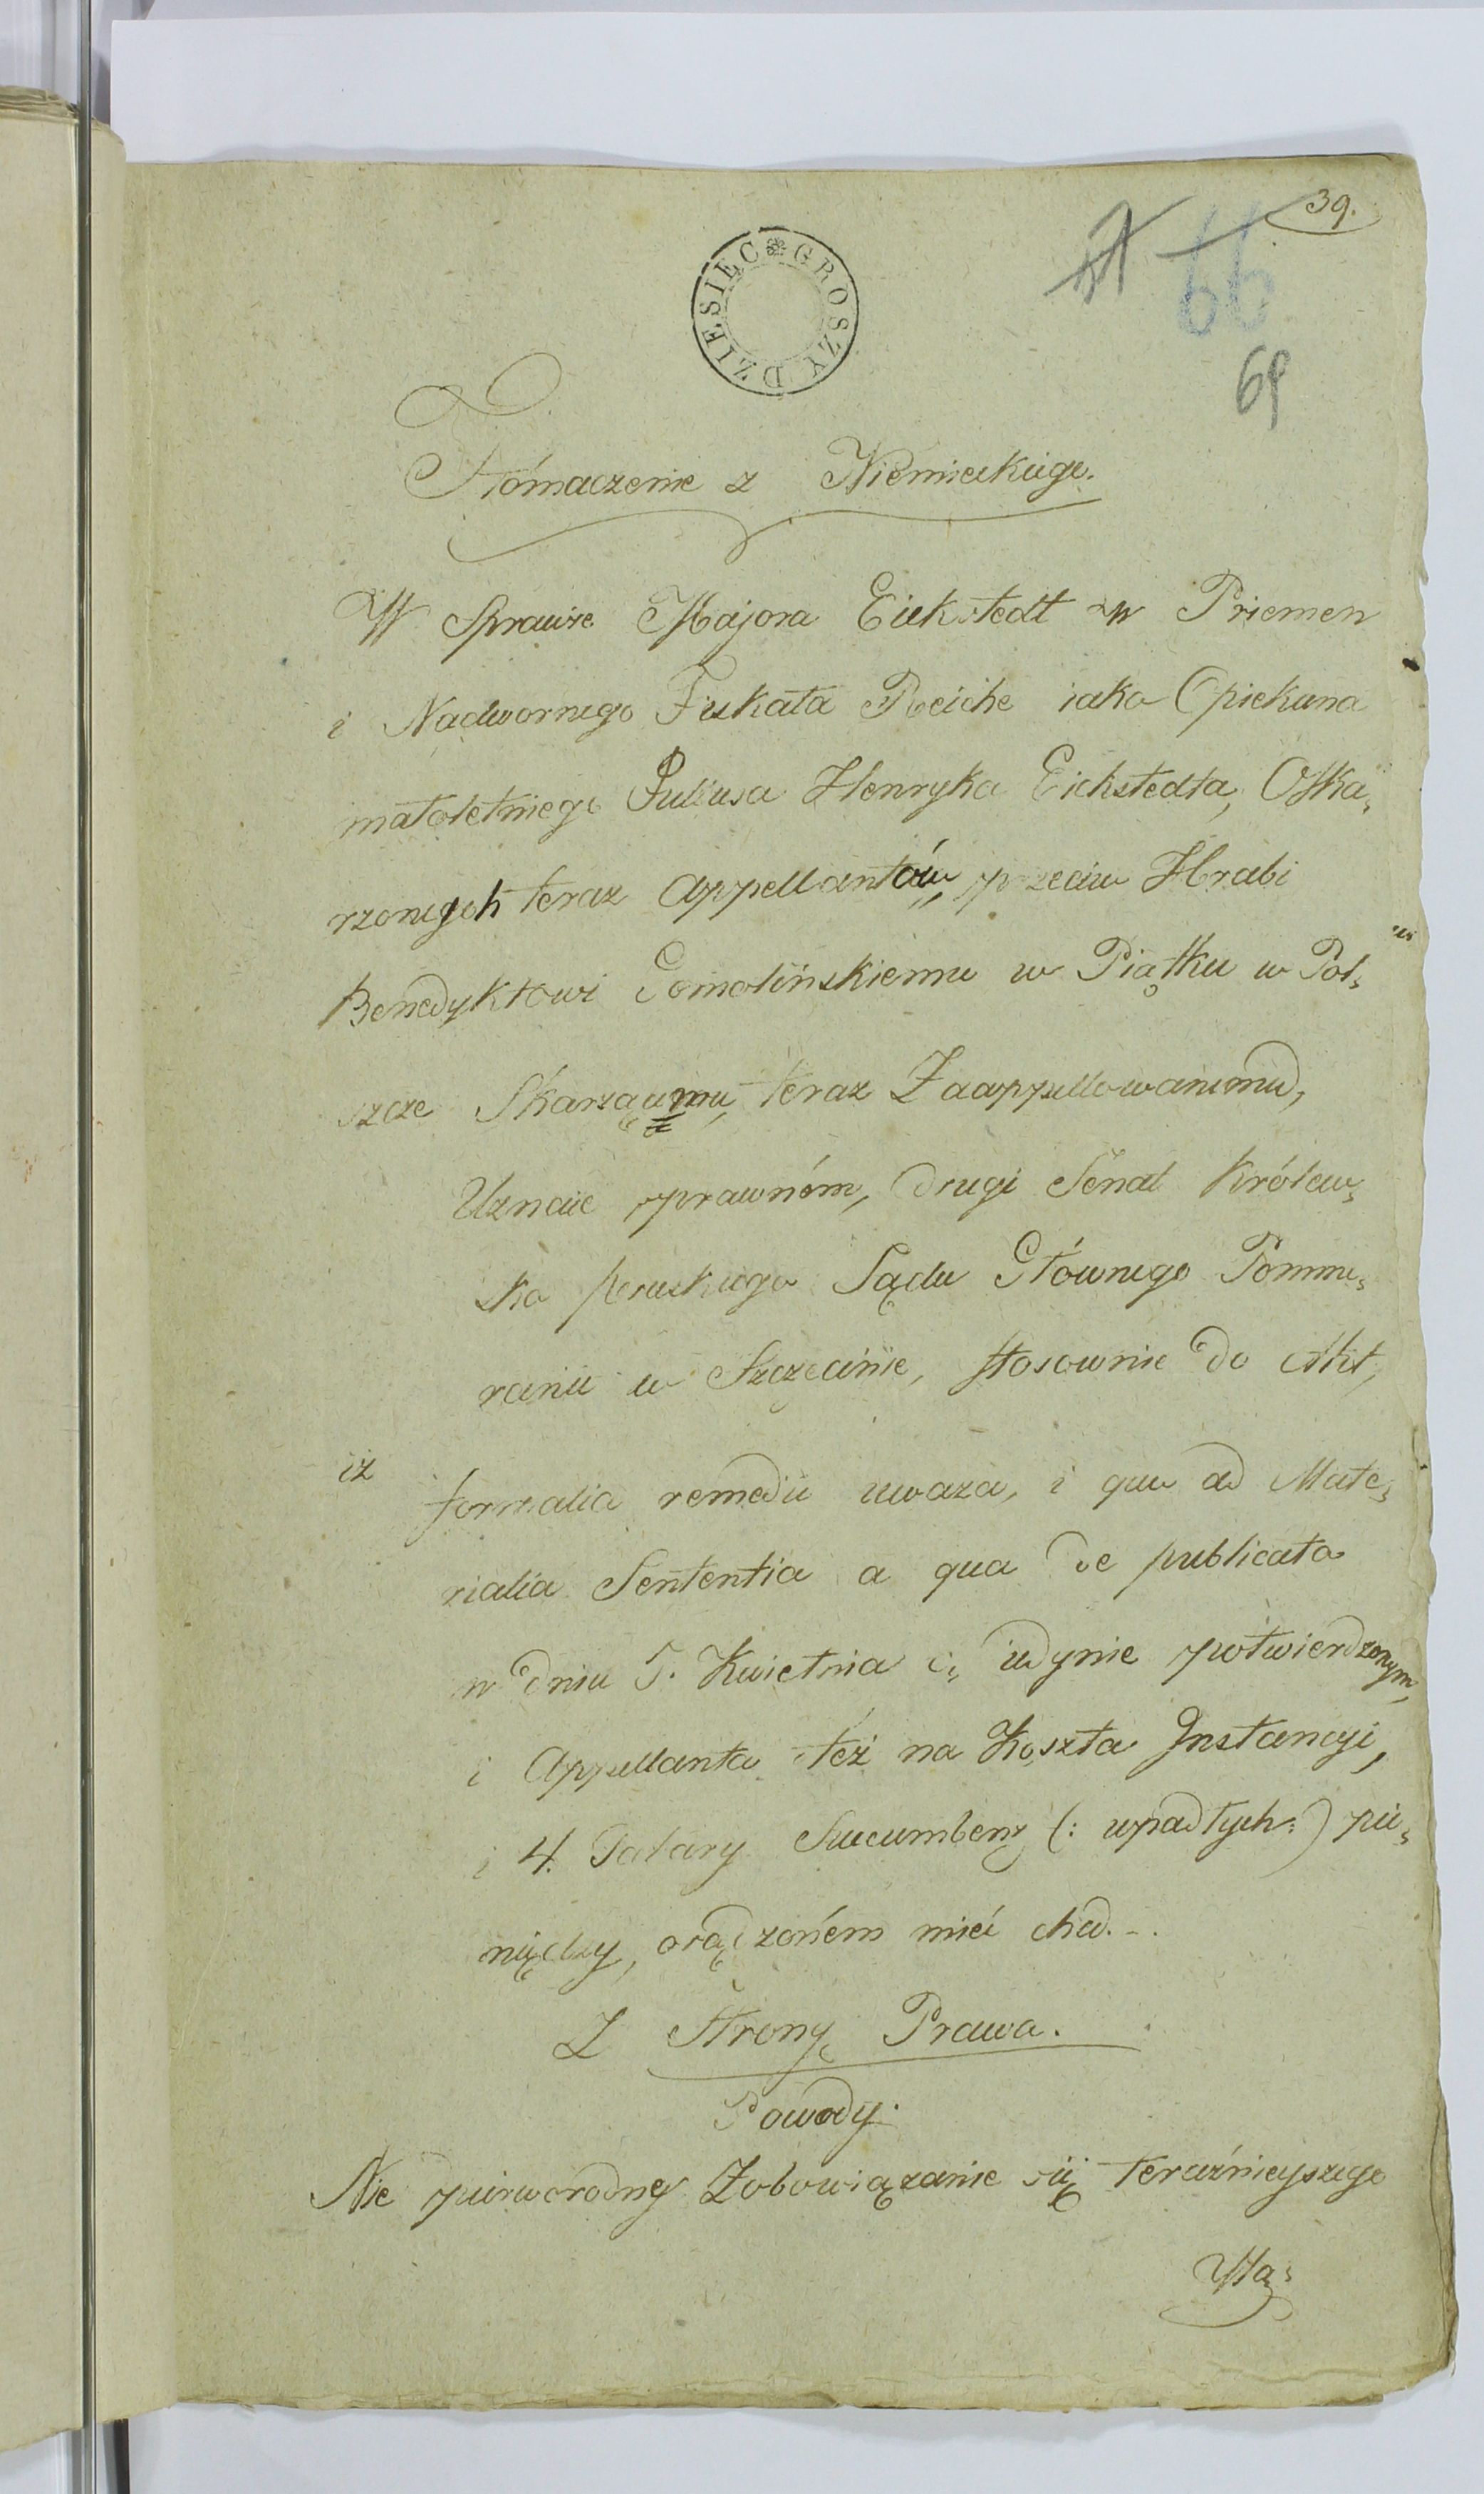 39.
66
69
DZIESIĘC GROSZY
Tłómaczenie z Niemieckiego.
W Sprawie Majora Eickstedt w Priemen
i Nadwornego Fiskała Reiche iako Opiekuna
małoletniego Juliusa Henryka Eickstedta, Oska„
rzonych teraz Appellantów, przeciw Hrabi
Benedyktowi Gomolińskiemu w Piątku w Pol„
szcze Skarzącemu, teraz Zaappellowanemu,
Uznaie prawném, drugi Senat Królew„
sko pruskiego Sądu Głównego Pomme„
ranii w Szczecinie, stosownie do Akt,
iż
formalia remedii uważa, i quo ad Mate„
rialia Sententia a qua de publicata
w dniu 5. Kwietnia c, iedynie potwierdzonym,
i Appellanta też na Koszta Instancyi,
i 4. Talary Succumbenz (: upadłych :) pie„
niędzy, osądzoném mieć chce. -.
Z Strony Prawa.
Powody.
Nie pierworodney Zobowiązanie się teraźnieyszego